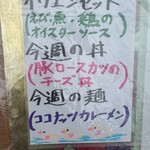 オリエンセット
(えび、魚・鶏の
オイスターソース)
今週の丼
(豚ロースカツの
チーズ丼)
今週の麺
(ココナッツカレーメン)